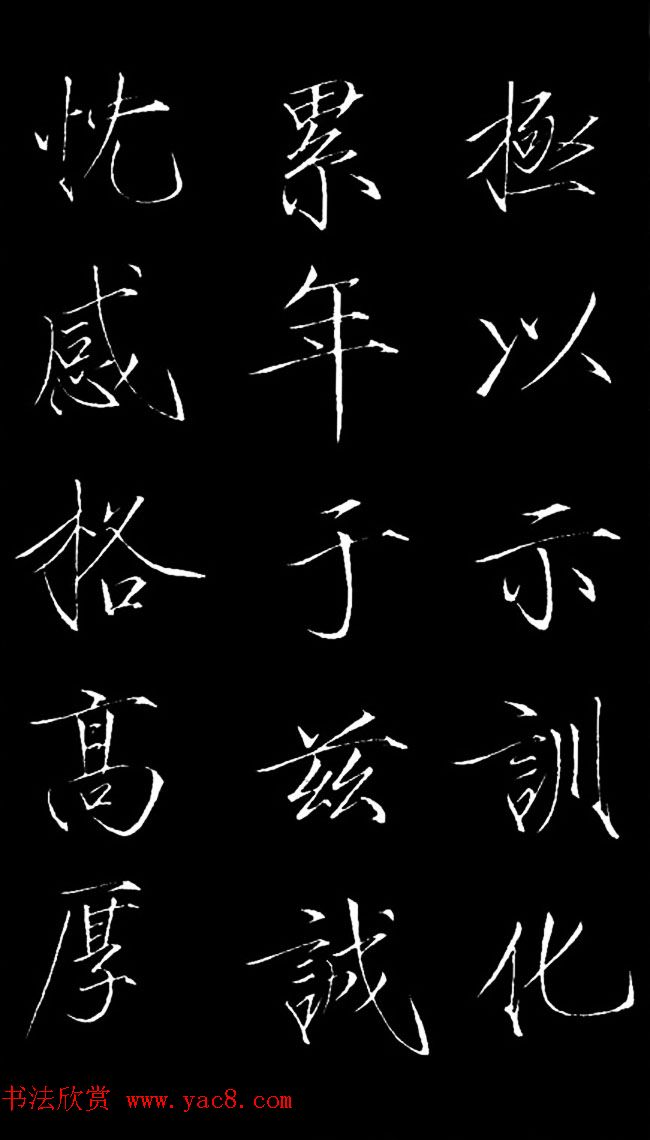 極以示訓化
累年于兹誠
忱感格高厚
书法欣赏 www.yac8.com